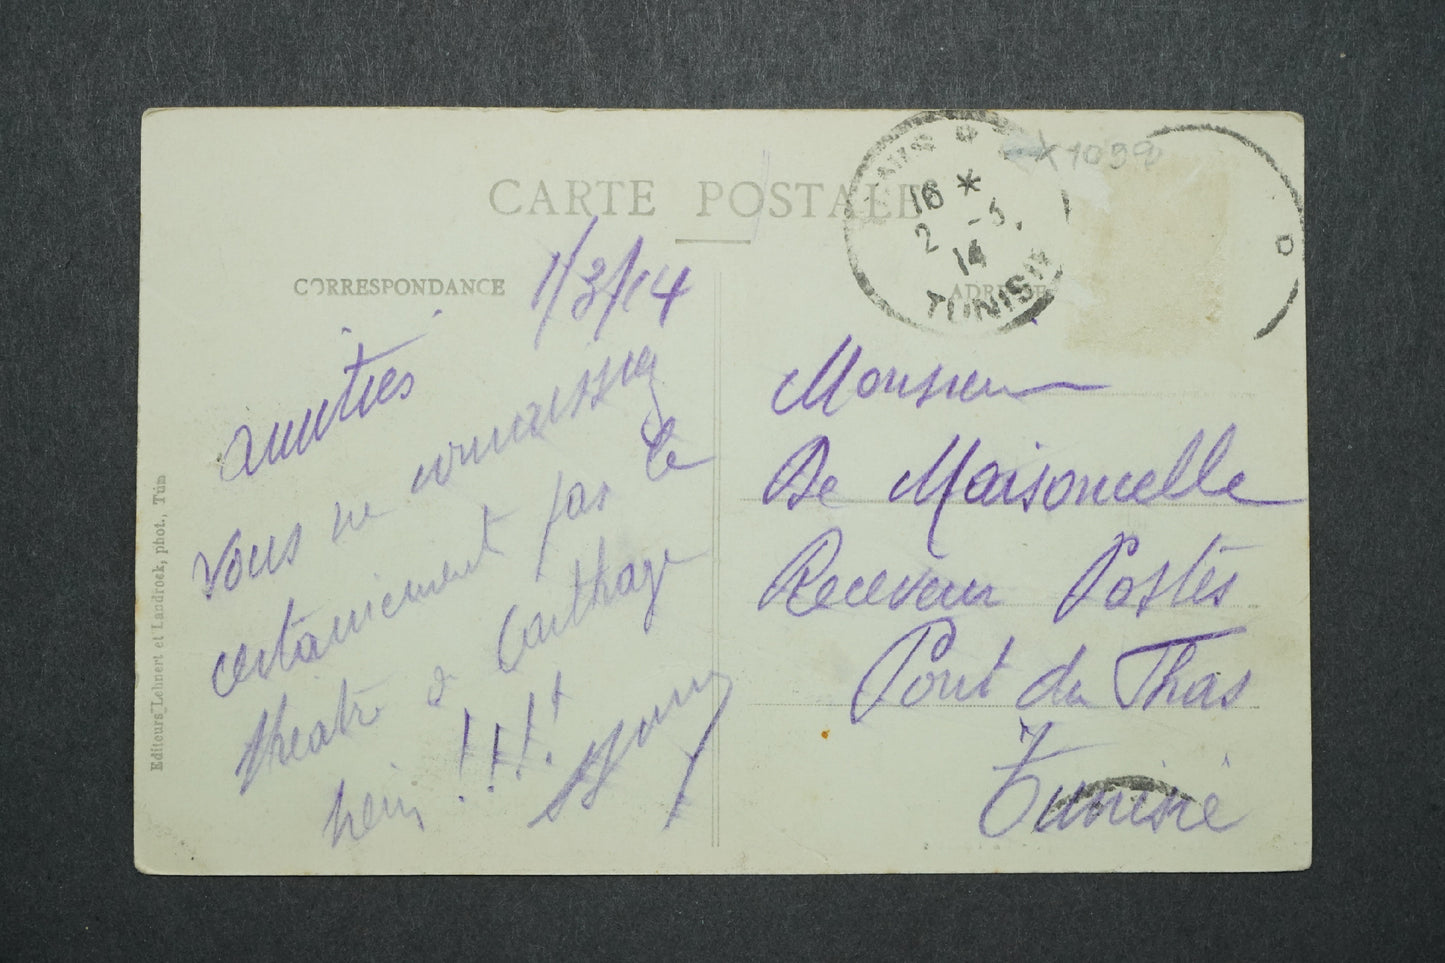 CARTE POSTALE
CORRESPONDANCE
1/3/14
amitiés
Vous ne connaissiez
certainement pas le
théatre de Carthage
hein !!!!
ADRESSE
TUNIS
16 *
2 -3
14
TUNISIE
1039
Monsieur
De Maisoncelle
Receveur Postes
Pont du Fhas
Tunisie
Editeurs Lehnert et Landrock, phot., Tunis